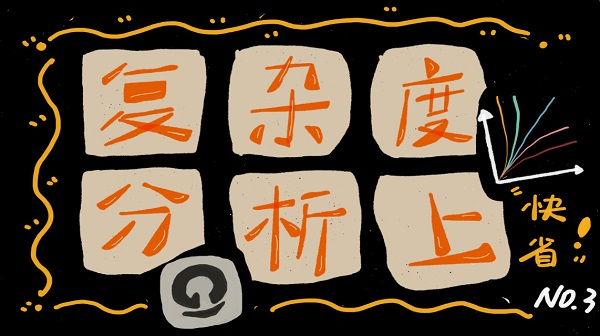 复杂度
分析上
快
省!
NO.3